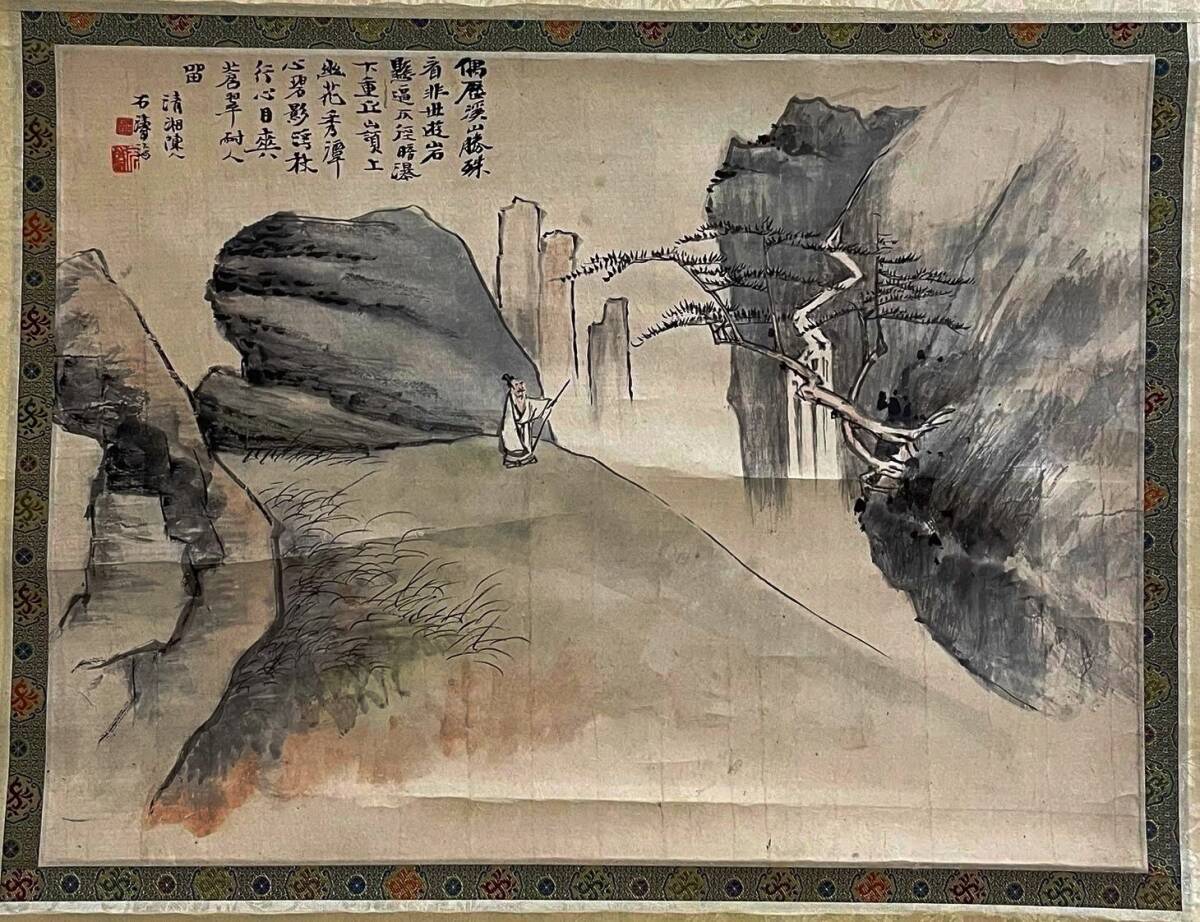 偶歷溪山勝殊
看非世遊岩
懸逼仄徑暗瀑
下重丘嶺上
幽花秀潭
心碧影秋
行心目爽
蒼翠耐人
留
清湘陳人
石濤